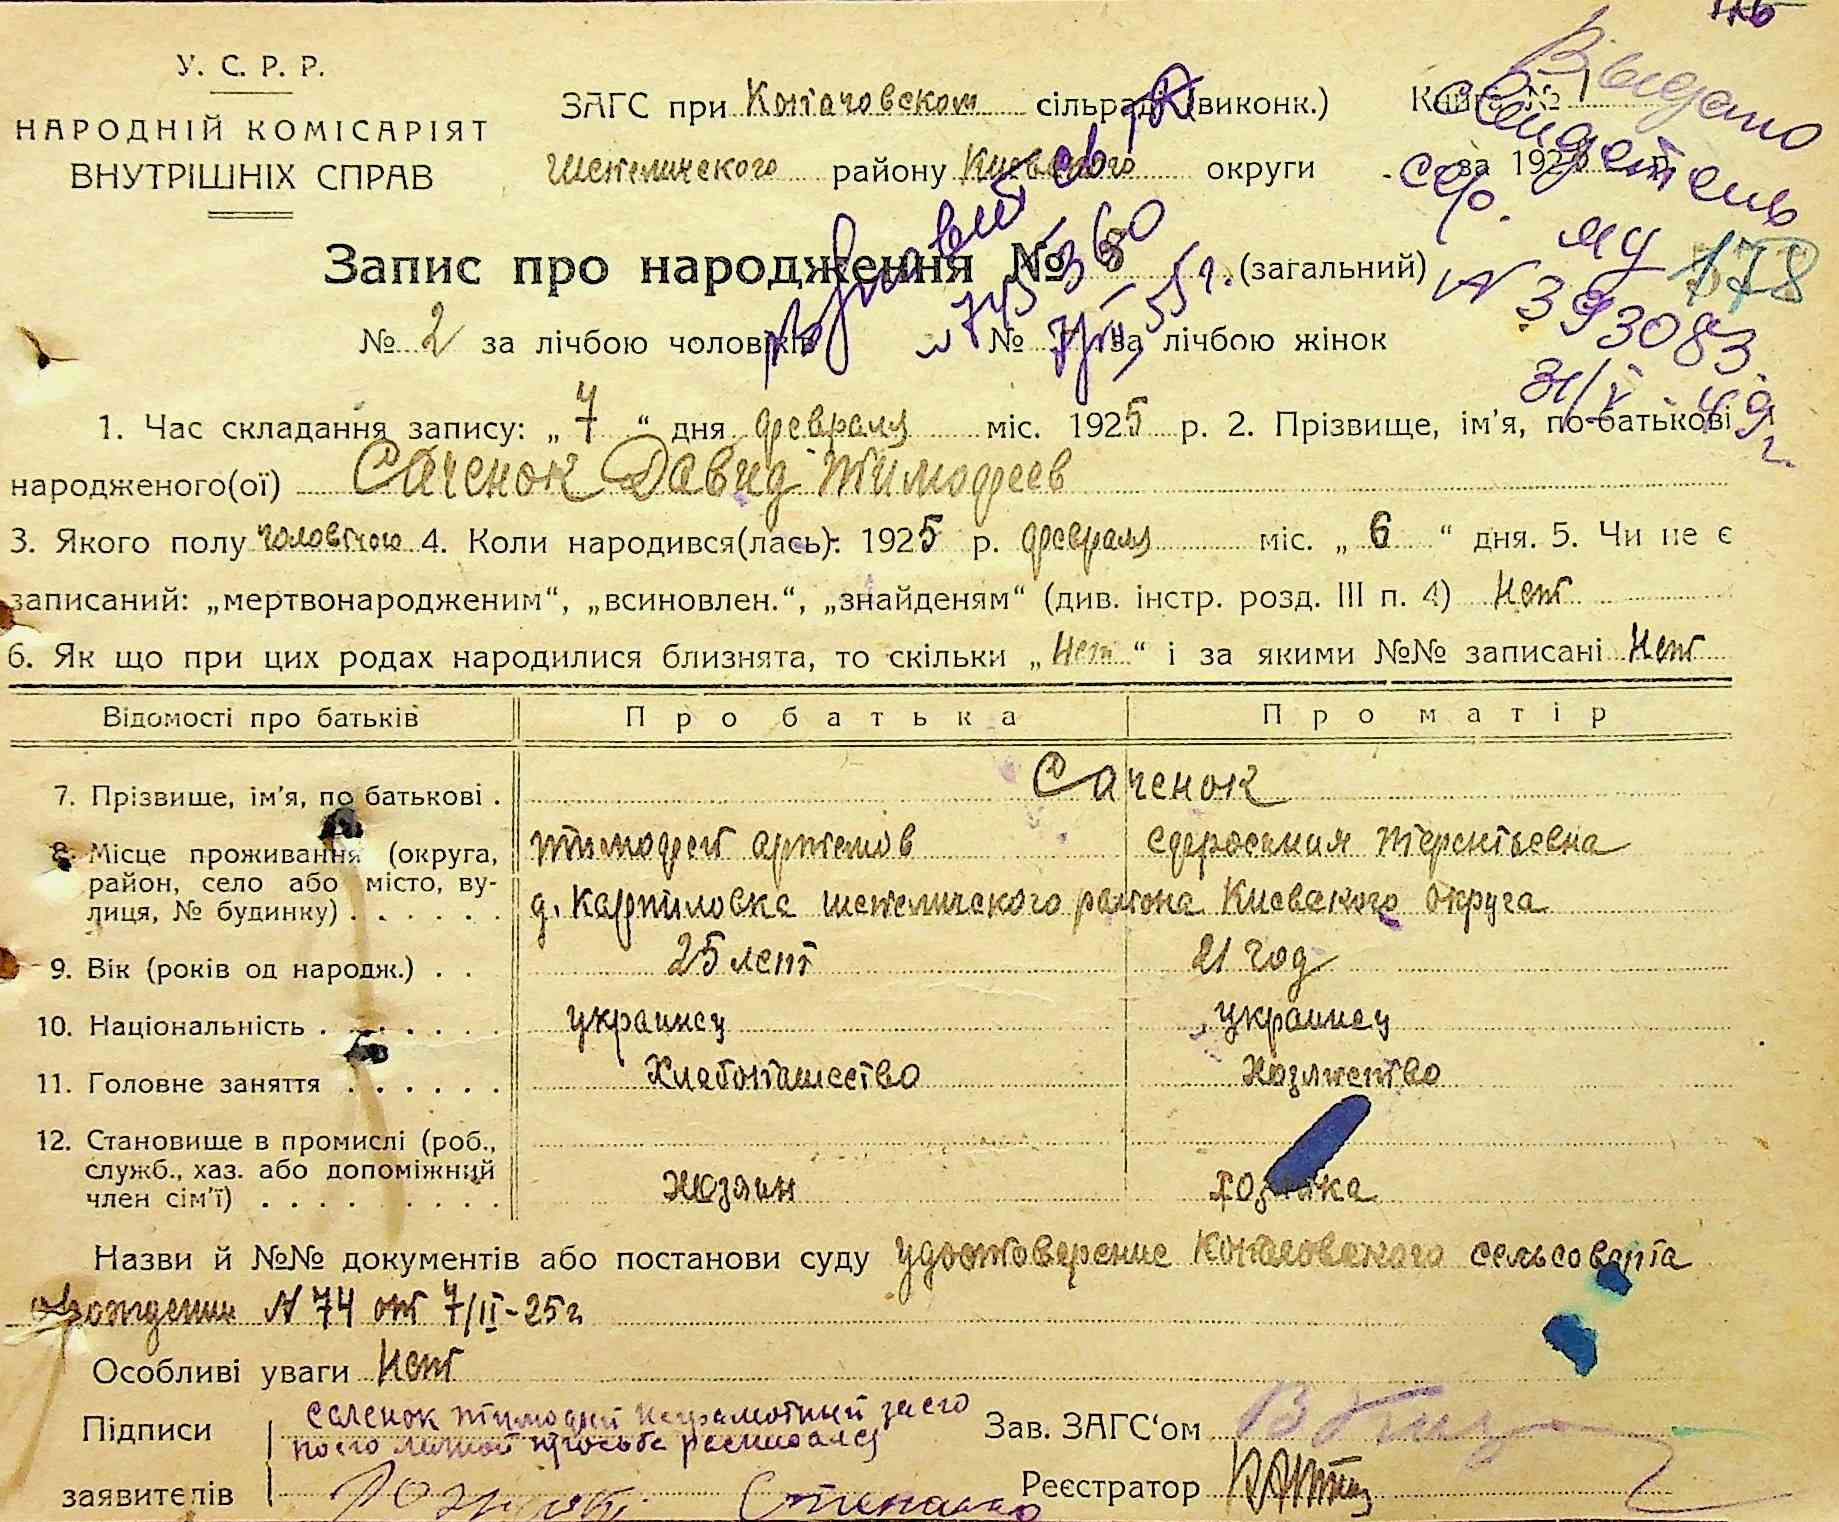 У. С. Р. Р.
НАРОДНІЙ КОМІСАРІЯТ
ВНУТРІШНІХ СПРАВ
ЗАГС при Копачовском сільраді (виконк.) Книга № 1
Шепеличского району Киевского округи за 1925 р.
Видано
свидетель
сво. ЯЦ
№ 393083
31/V-49 г.
178
Запис про народження № 8 (загальний)
745360
55 г.
№ 2 за лічбою чоловіків № за лічбою жінок
1. Час складання запису: „ 7 “ дня февраля міс. 1925 р. 2. Прізвище, ім’я, по-батькові
народженого(ої) Саченок Давид Тимофеев
3. Якого полу чоловічого 4. Коли народився(лась): 1925 р. февраля міс. „ 6 “ дня. 5. Чи не є
записаний: „мертвонародженим“, „всиновлен.“, „знайденям“ (див. інстр. розд. III п. 4) Нет
6. Як що при цих родах народилися близнята, то скільки „Нет“ і за якими №№ записані Нет
Відомості про батьків Про батька Про матір
7. Прізвище, ім’я, по батькові . Саченок
Тимофей Артемов Ефросиния Терентьевна
8. Місце проживання (округа,
район, село або місто, ву-
лиця, № будинку) . . . . . . д. Карпиловка Шепеличского района Киевского Округа
9. Вік (років од народж.) . . 25 лет 21 год
10. Національність . . . . . . . украинец украинец
11. Головне заняття . . . . . . Хлебопашество Хозяйство
12. Становище в промислі (роб.,
служб., хаз. або допоміжний
член сім’ї) . . . . . . . . . Хозяин хозяйка
Назви й №№ документів або постанови суду Удостоверение Копачовского сельсовета
о рождении № 74 от 7/II-25 г.
Особливі уваги Нет
Підписи Саченок Тимофей неграмотный за его
по его личной просьбе расписался
Зав. ЗАГС‘ом
заявителів Степан
Реєстратор